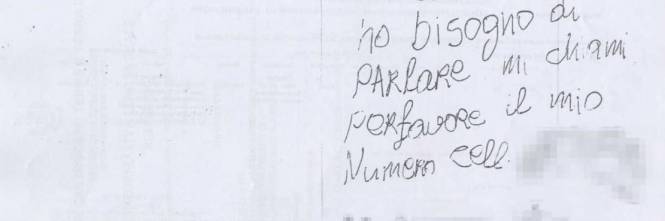 ho bisogno di
PARLARE mi chiami
PERfavore il mio
Numero cell.